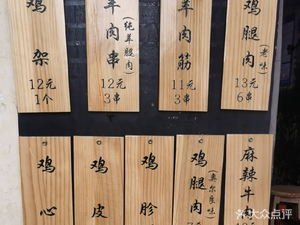 鸡架
12元
1个
羊肉串
(纯羊腿肉)
12元
3串
羊肉筋
11元
3串
鸡腿肉
13元
6串
鸡心
鸡皮
鸡胗
鸡腿肉
(奥尔良味)
麻辣牛
大众点评